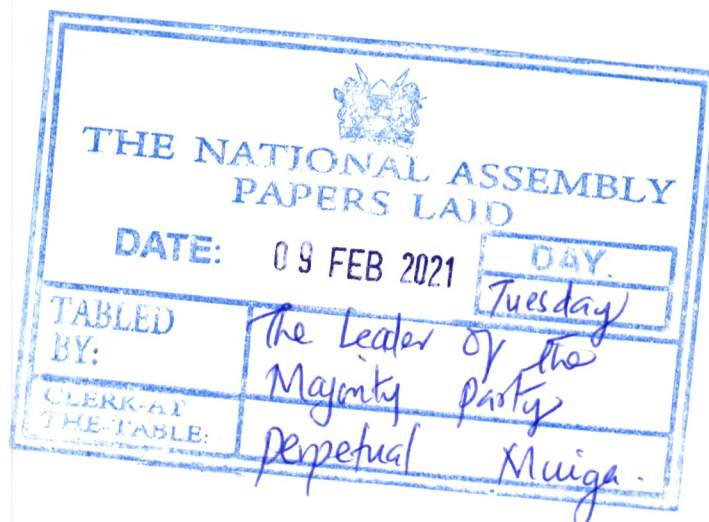 THE NATIONAL ASSEMBLY
PAPERS LAID
DATE: 09 FEB 2021
DAY.
Tuesday
TABLED BY:
The Leader of the
Majority Party
CLERK-AT
THE-TABLE:
Perpetual Muiga.